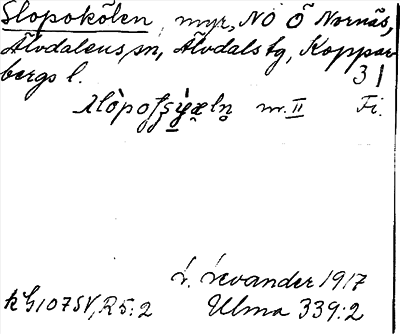 Slopokölen, myr, NO Ö Nornäs,
Älvdalens sn, Älvdals tg, Koppar-
bergs l. 31
m. II Fi.
L. Levander 1917
kh 107 SV, R5:2 Ulma 339:2